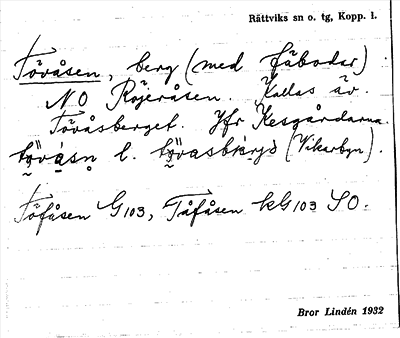 Rättviks sn o. tg, Kopp. l.
Tövåsen, berg (med fäbodar).
NO Röjeråsen. Kallas äv.
Tövåsberget. Jfr Kesgårdarna.
tövåsn l. tövasbärjä (Vikarbyn).
Töfåsen G103, Tåfåsen kG103 SO.
Bror Lindén 1932